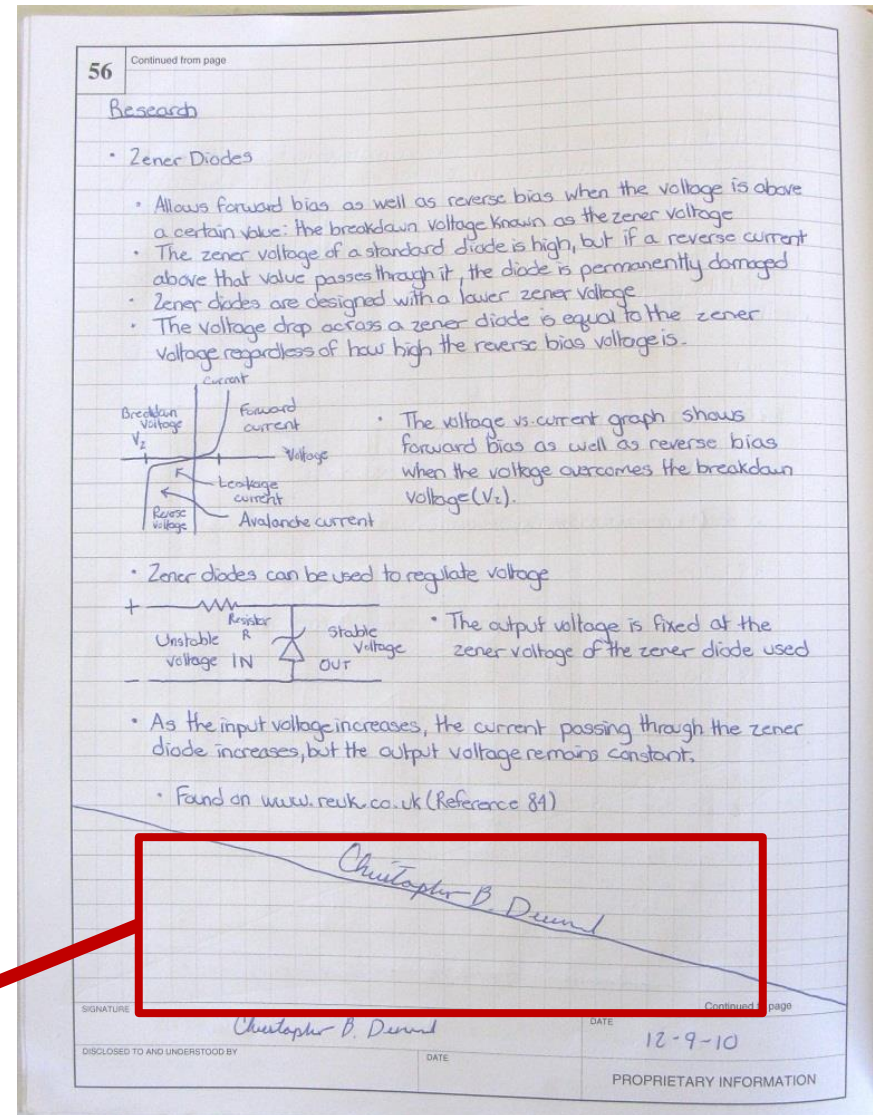 56 Continued from page
Research
• Zener Diodes
• Allows forward bias as well as reverse bias when the voltage is above
a certain value: the breakdown voltage known as the zener voltage
• The zener voltage of a standard diode is high, but if a reverse current
above that value passes through it, the diode is permanently damaged
• Zener diodes are designed with a lower zener voltage
• The voltage drop across a zener diode is equal to the zener
voltage regardless of how high the reverse bias voltage is.
Current
Breakdown
Voltage
Vz
Forward
current
Voltage
Leakage
current
Reverse
Voltage
Avalanche current
• The voltage vs. current graph shows
forward bias as well as reverse bias
when the voltage overcomes the breakdown
voltage (Vz).
• Zener diodes can be used to regulate voltage
+
Resistor
R
Unstable
voltage IN
Stable
Voltage
OUT
–
• The output voltage is fixed at the
zener voltage of the zener diode used
• As the input voltage increases, the current passing through the zener
diode increases, but the output voltage remains constant.
• Found on www.reuk.co.uk (Reference 84)
Christopher B.
Continued page
SIGNATURE
Christopher B.
DATE
12-9-10
DISCLOSED TO AND UNDERSTOOD BY
DATE
PROPRIETARY INFORMATION